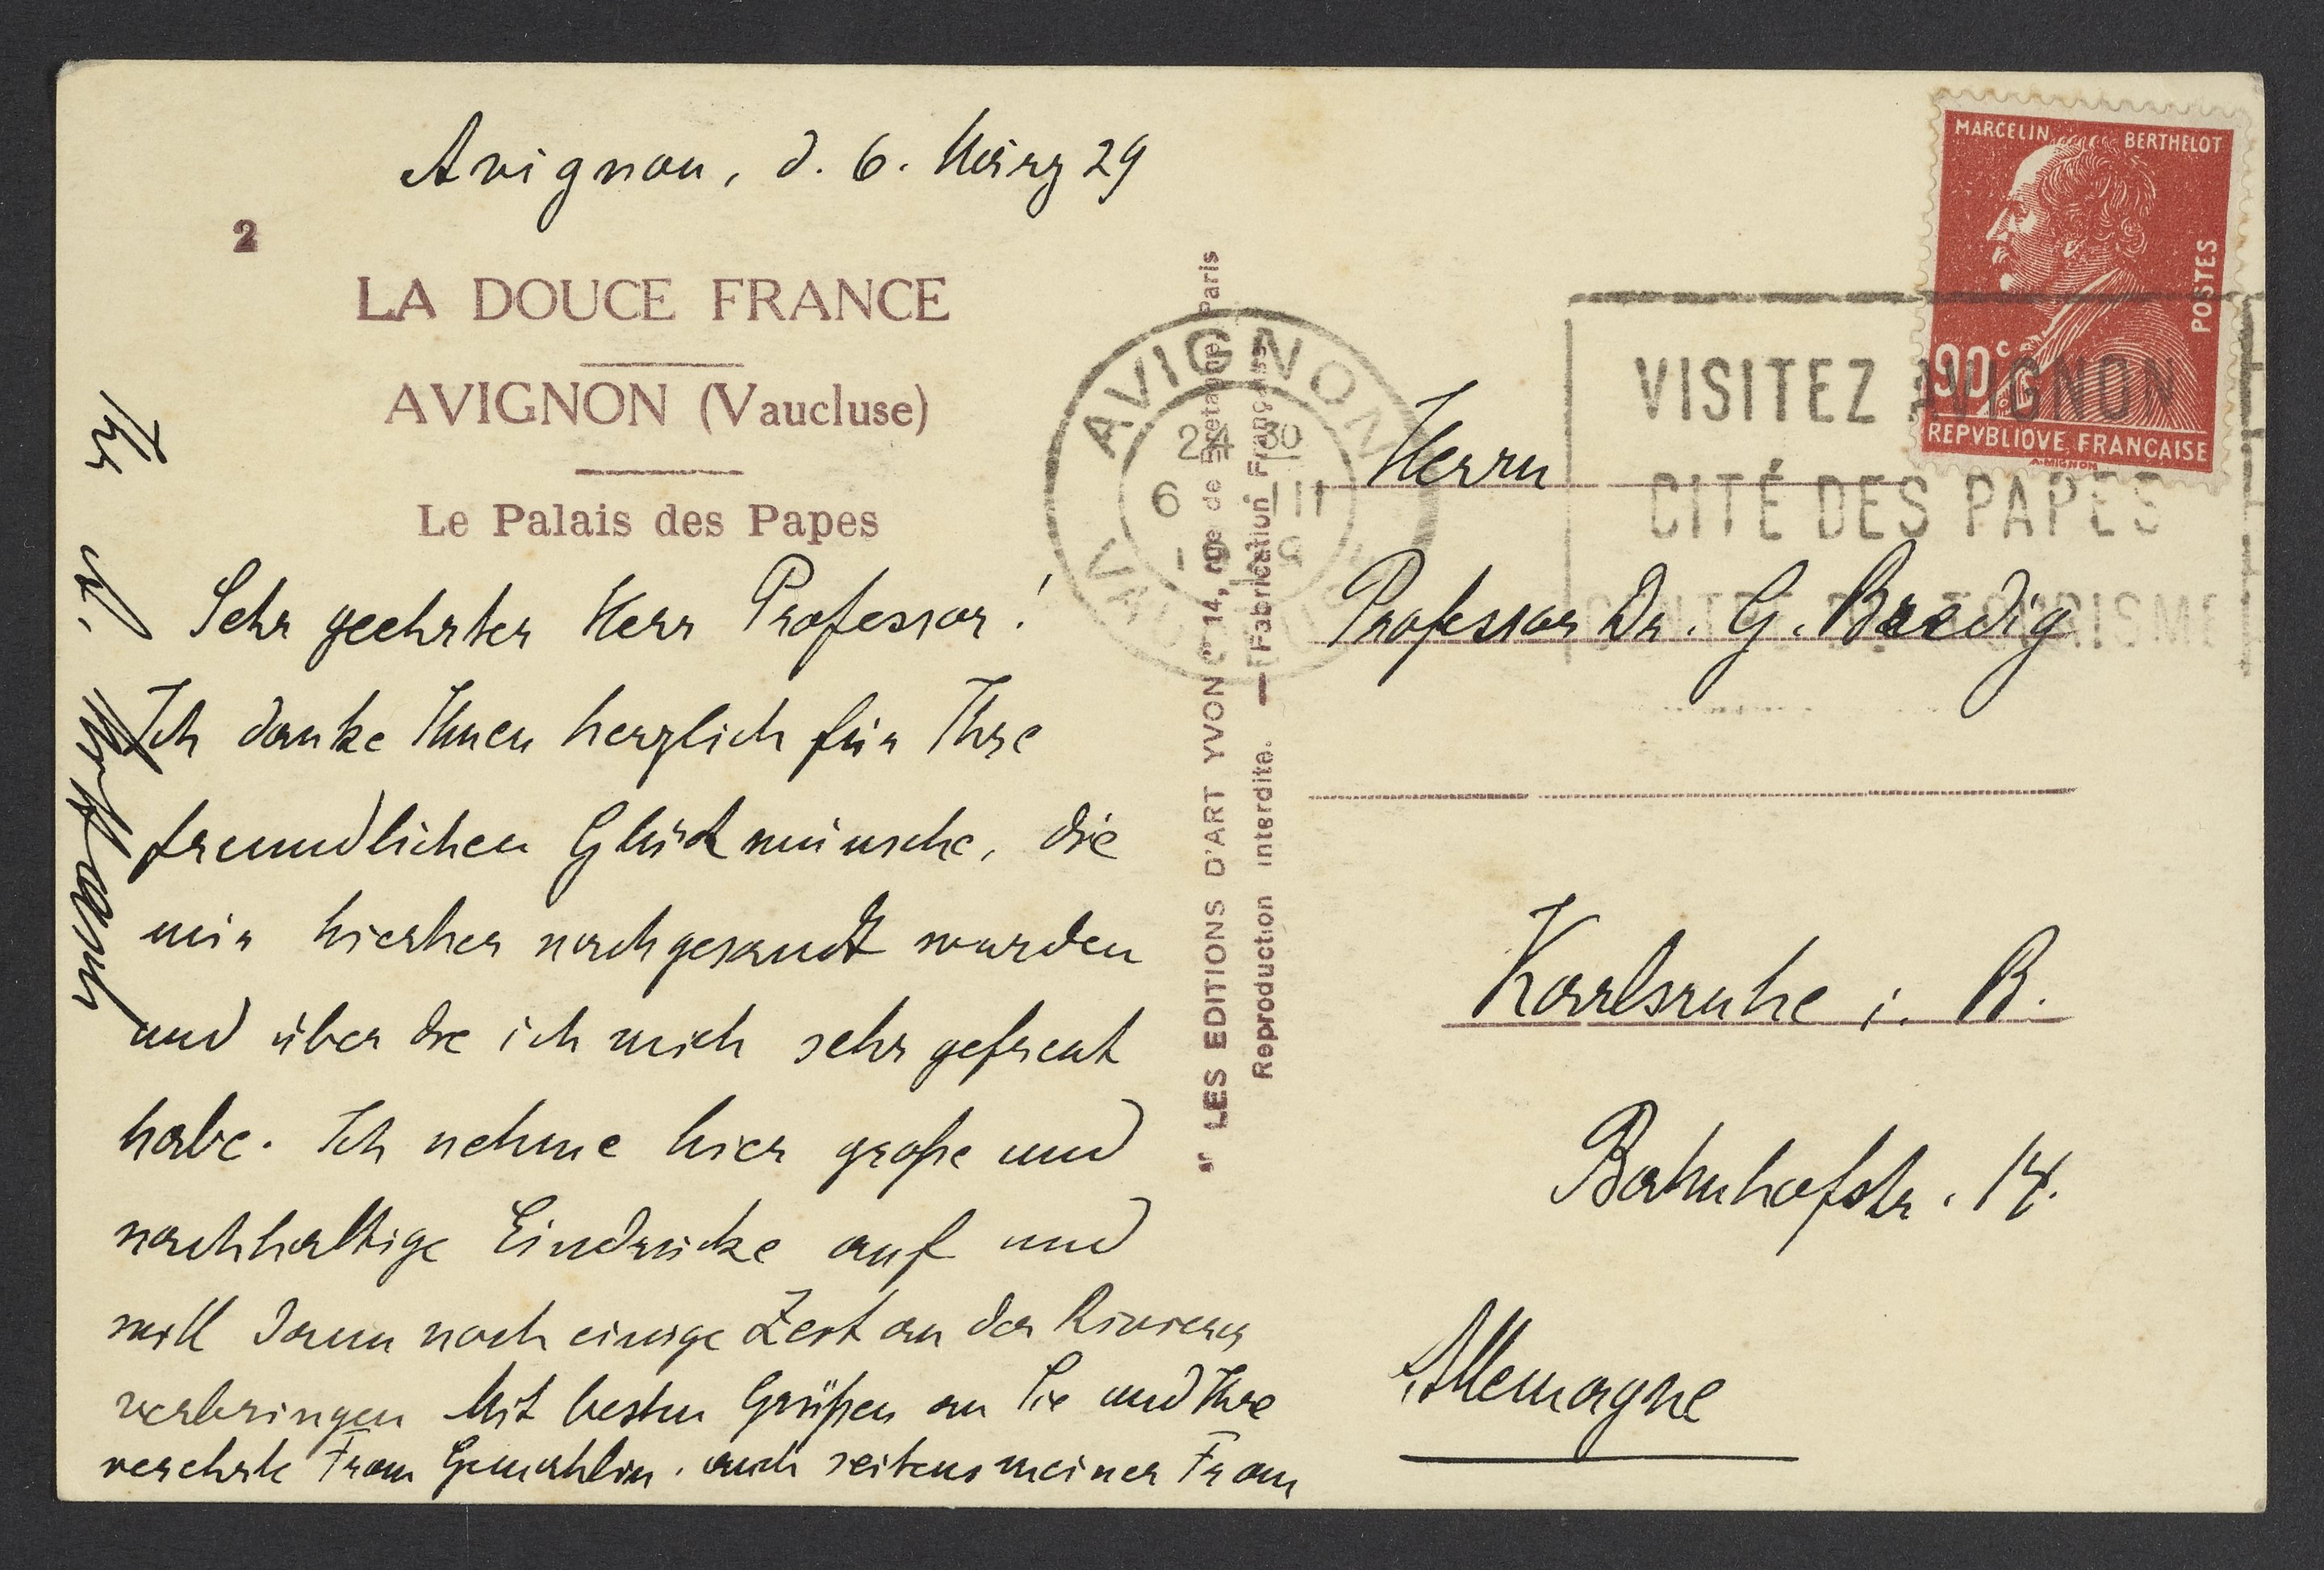 Avignon, d. 6. März 29
2
LA DOUCE FRANCE
AVIGNON (Vaucluse)
Le Palais des Papes
Sehr geehrter Herr Professor!
Ich danke Ihnen herzlich für Ihre
freundlichen Glückwünsche, die
mir hierher nachgesandt wurden
und über die ich mich sehr gefreut
habe. Ich nehme hier große und
nachhaltige Eindrücke auf und
will dann noch einige Zeit an der Riviera
verbringen Mit besten Grüßen an Sie und Ihre
verehrte Frau Gemahlin, auch seitens meiner Frau
Ihr
" LES EDITIONS D'ART YVON " 14, rue de Bretagne, Paris
Reproduction interdite. — Fabrication Française
AVIGNON
24 30
6 III
VISITEZ AVIGNON
CITÉ DES PAPES
TOURISME
MARCELIN BERTHELOT
POSTES
90c
REPVBLIQVE FRANCAISE
A. MIGNON
Herrn
Professor Dr. G. Bredig
Karlsruhe i. B.
Bahnhofstr. 14.
Allemagne